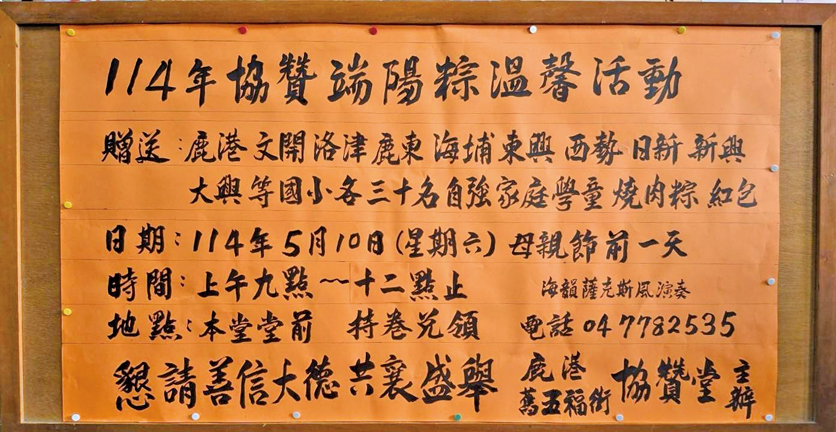 114年協贊端陽粽溫馨活動
贈送:鹿港文開洛津鹿東海埔東興西勢日新新興
大興等國小各三十名自強家庭學童燒肉粽紅包
日期:114年5月10日(星期六)母親節前一天
時間:上午九點~十二點止 海韻薩克斯風演奏
地點:本堂堂前 持卷兌領 電話 04 7782535
懇請善信大德共襄盛舉 鹿港 舊五福街 協贊堂 主辦